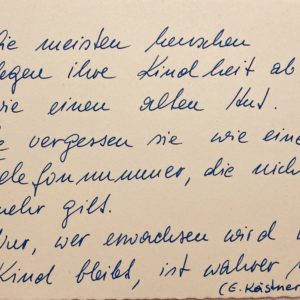 ie meisten Menschen
legen ihre Kindheit ab
wie einen alten Hut.
e vergessen sie wie eine
elefonnummer, die nich
mehr gilt.
Nur, wer erwachsen wird u
Kind bleibt, ist wahrer
(E. Kästner